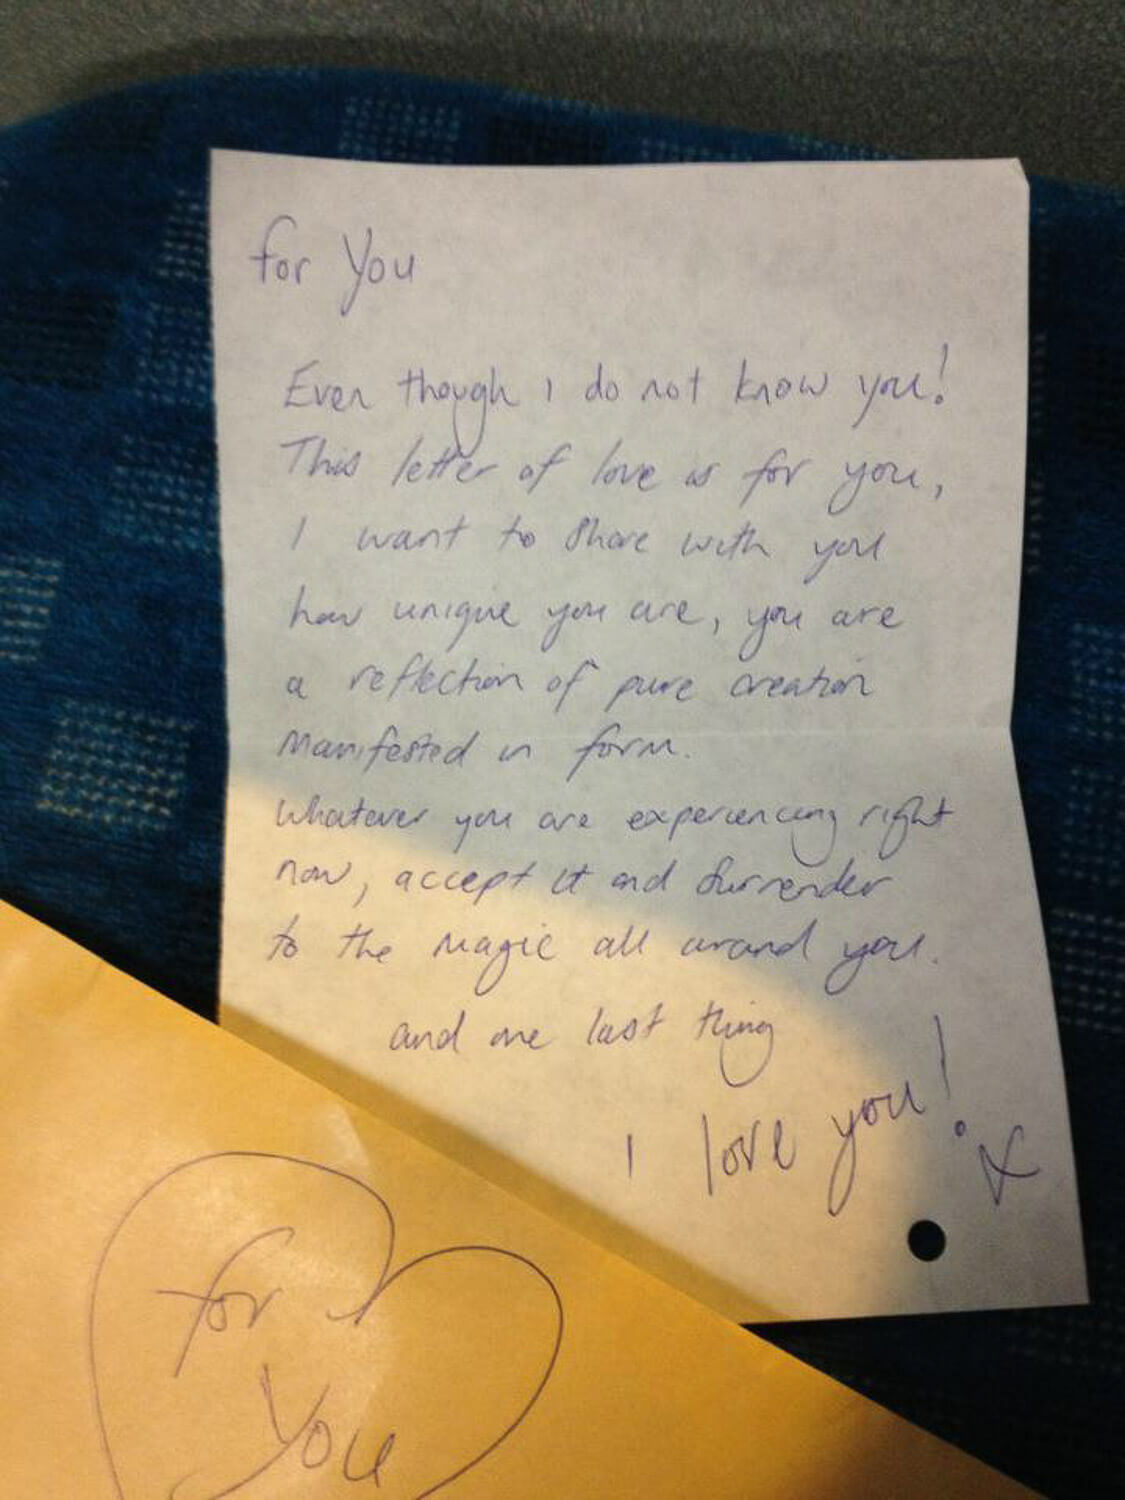 for You
Even though I do not know you!
This letter of love is for you,
I want to share with you
how unique you are, you are
a reflection of pure creation
Manifested in form.
Whatever you are experiencing right
now, accept it and surrender
to the magic all around you.
and one last thing
I love you! X
for
You